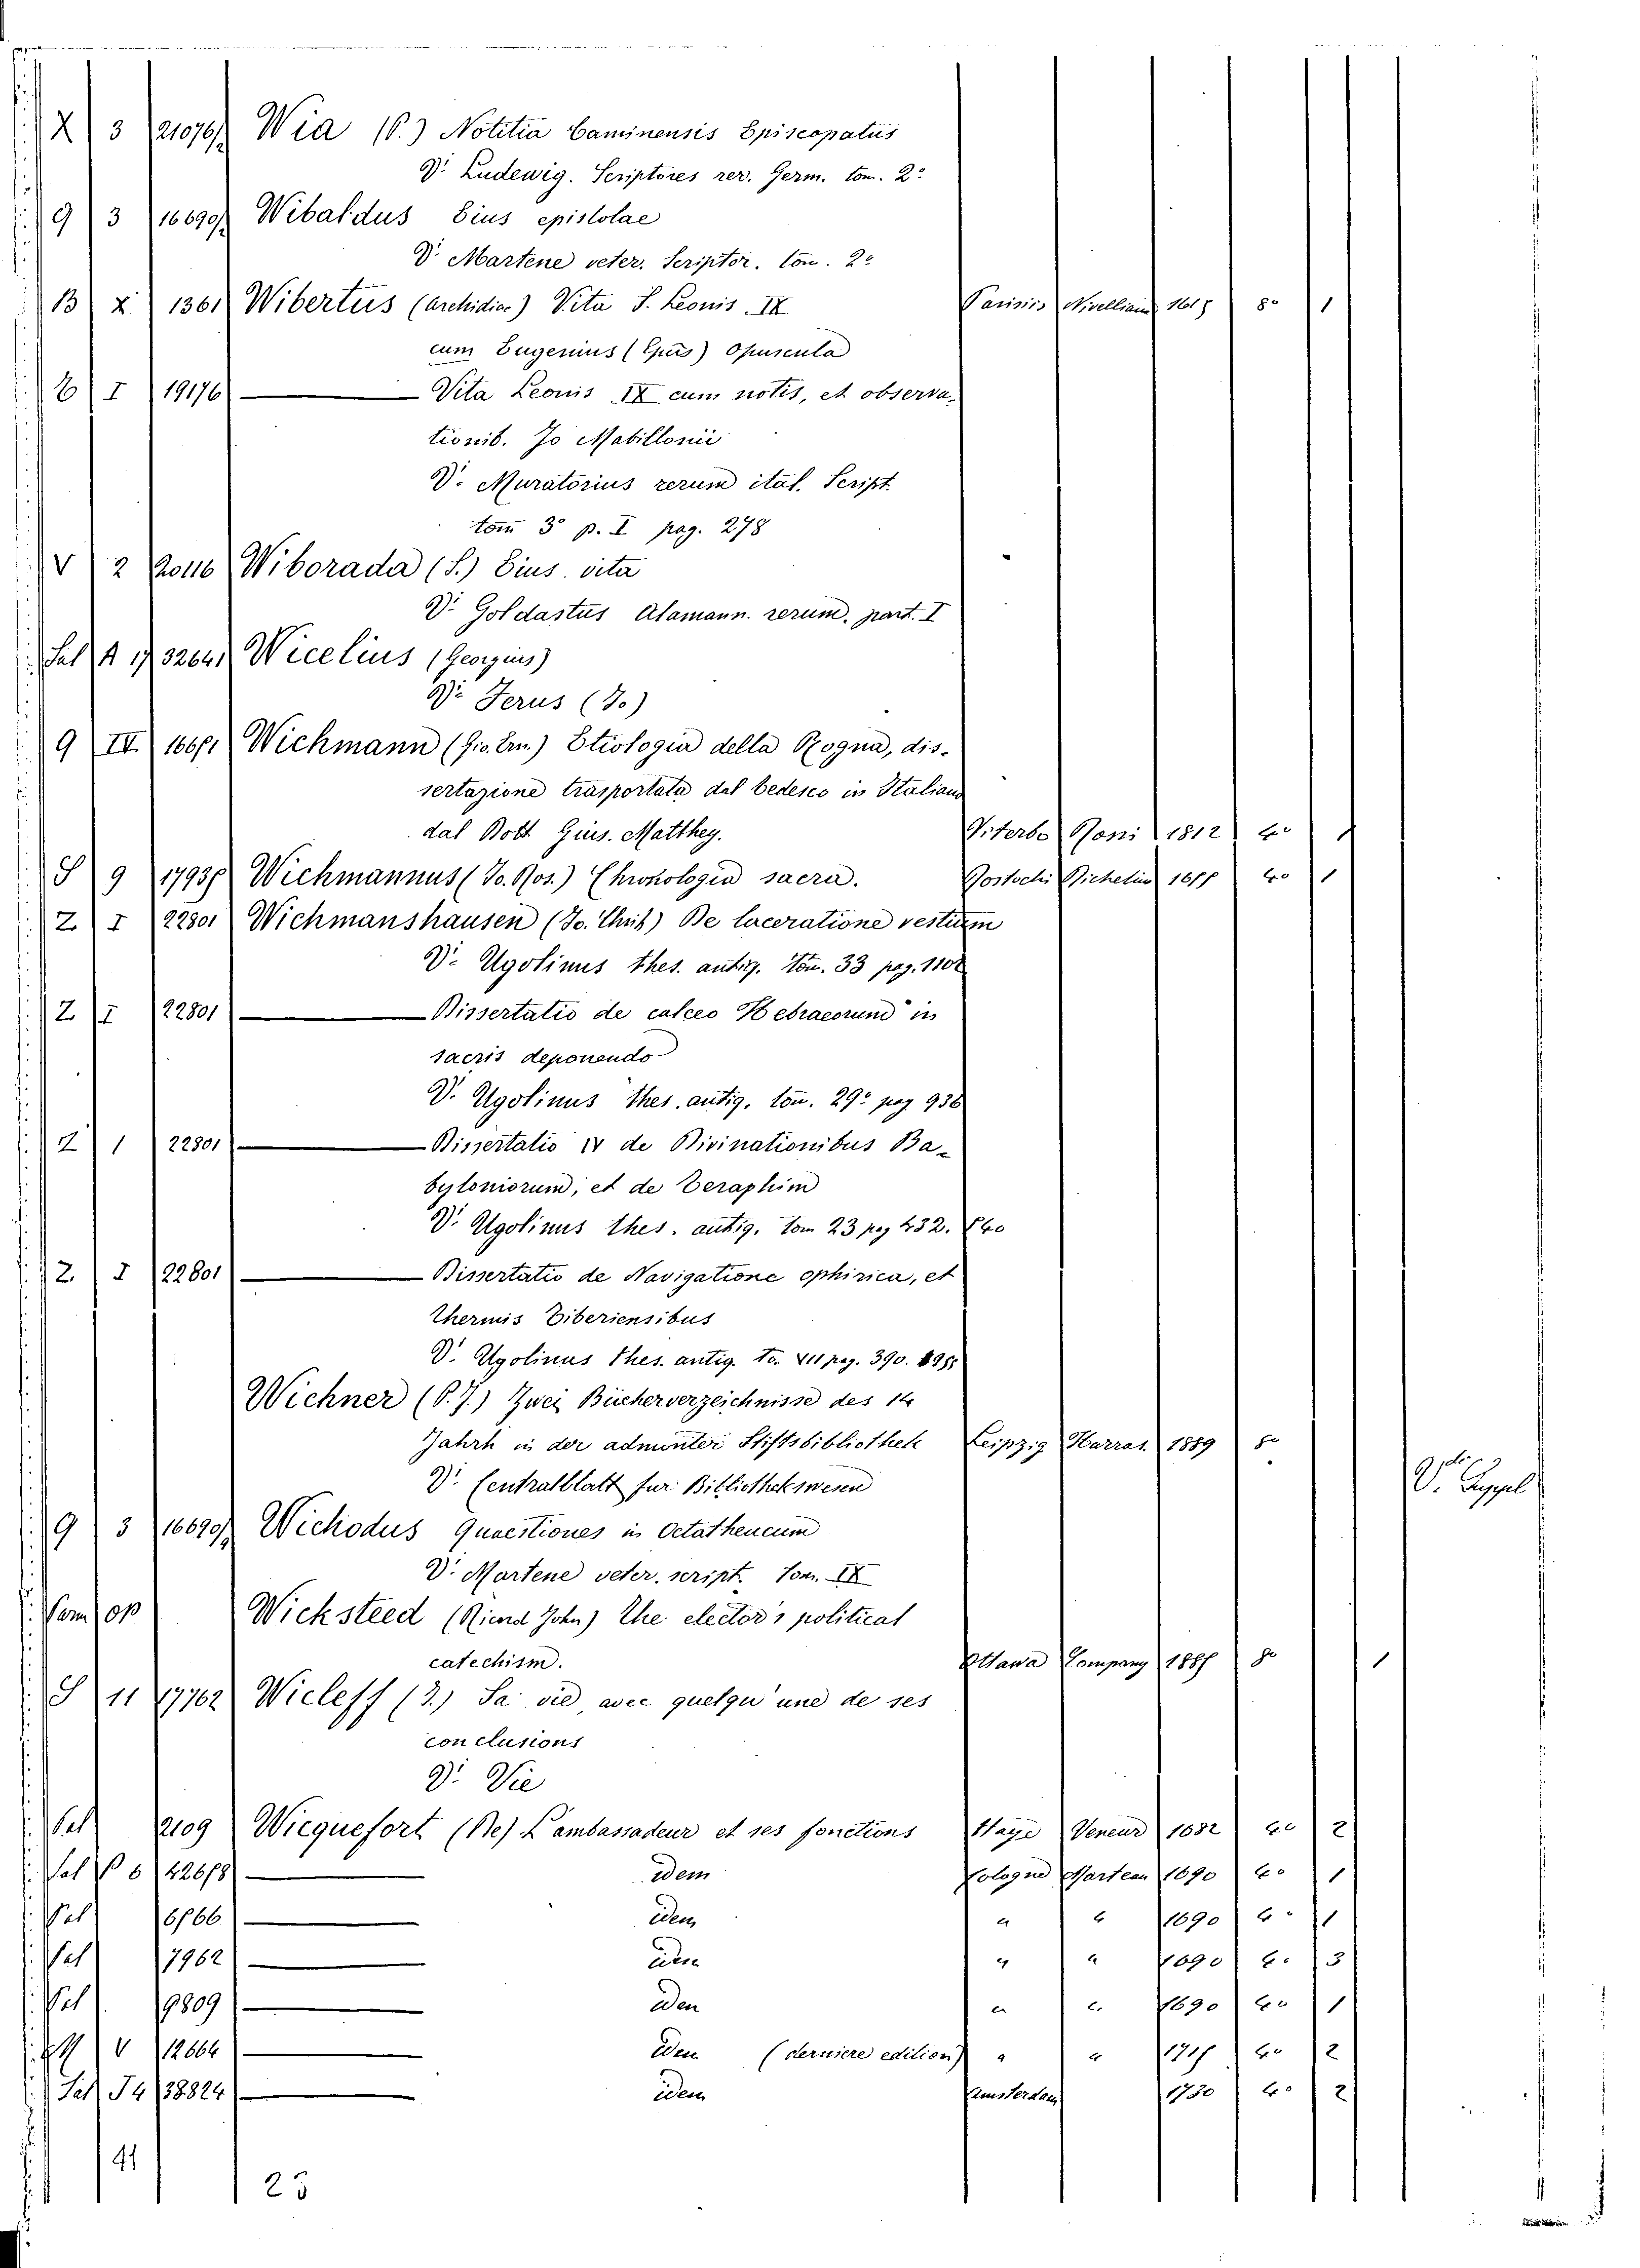 X 3 21076/2 Wia (P.) Notitia Caminensis Episcopatus
V. Ludewig. Scriptores rer. Germ. tom. 2º
9 3 16690/2 Wibaldus Eius epistolae
V. Martene veter. Scriptor. tom. 2º
B X 1361 Wibertus (archidiac) Vita S. Leonis IX Parisiis Nivelliana 1615 8º 1
cum Eugenius (Epus) Opuscula
I 19176 — Vita Leonis IX cum notis, et observa-
tionib. Jo Mabillonii
V. Muratorius rerum ital. Script.
tom 3º p. I pag. 278
V 2 20116 Wiborada (S.) Eius vita
V. Goldastus Alamann. rerum. part. I
Sal A 17 32641 Wicelius (Georgius)
V. Ferus (Jo)
9 IV 16651 Wichmann (Gio. Ern.) Etiologia della Rogna, dis-
sertazione trasportata dal tedesco in Italiano
dal Dott Gius. Matthey. Viterbo Poni 1812 4º 1
S 9 17935 Wichmannus (Jo. Ros.) Chronologia sacra. Rostochi Richelius 1655 4º 1
Z I 22801 Wichmanshausen (Jo. Chri) De laceratione vestium
V. Ugolinus thes. antiq. tom. 33 pag. 1102
Z I 22801 — Dissertatio de calceo Hebraeorum in
sacris deponendo
V. Ugolinus thes. antiq. tom. 29º pag 938
Z 1 22801 — Dissertatio IV de Divinationibus Ba-
byloniorum, et de Teraphim
V. Ugolinus thes. antiq. tom 23 pag 432. 840
Z. I 22801 — Dissertatio de Navigatione ophirica, et
thermis Tiberiensibus
V. Ugolinus thes. antiq. to. VII pag. 390.
Wichner (P. J.) Zwei Bücherverzeichnisse des 14
Jahrh in der admonter Stiftsbibliothek Leipzig Harras. 1889 8º
V. Centralblatt fur Bibliothekswesen
9 3 16690/9 Wichodus Quaestiones in Octatheucum
V. Martene veter. script. tom. IX
op Wicksteed (Ricard John) The elector's political
catechism. Ottawa Company 1885 8º 1
S 11 17762 Wicleff (J.) Sa vie, avec quelqu'une de ses
conclusions
V. Vie
Sal 2109 Wicquefort (De) L'ambassadeur et ses fonctions Haye Veneur 1682 4º 2
Sal P 6 42678 — idem Cologne Marteau 1690 4º 1
Sal 6566 — idem " " 1690 4º 1
Sal 7962 — idem " " 1690 4º 3
Sal 9809 — idem " " 1690 4º 1
V 12664 — idem (derniere edition) " " 1715 4º 2
Sal J4 38824 — idem Amsterdam 1730 4º 2
41
25